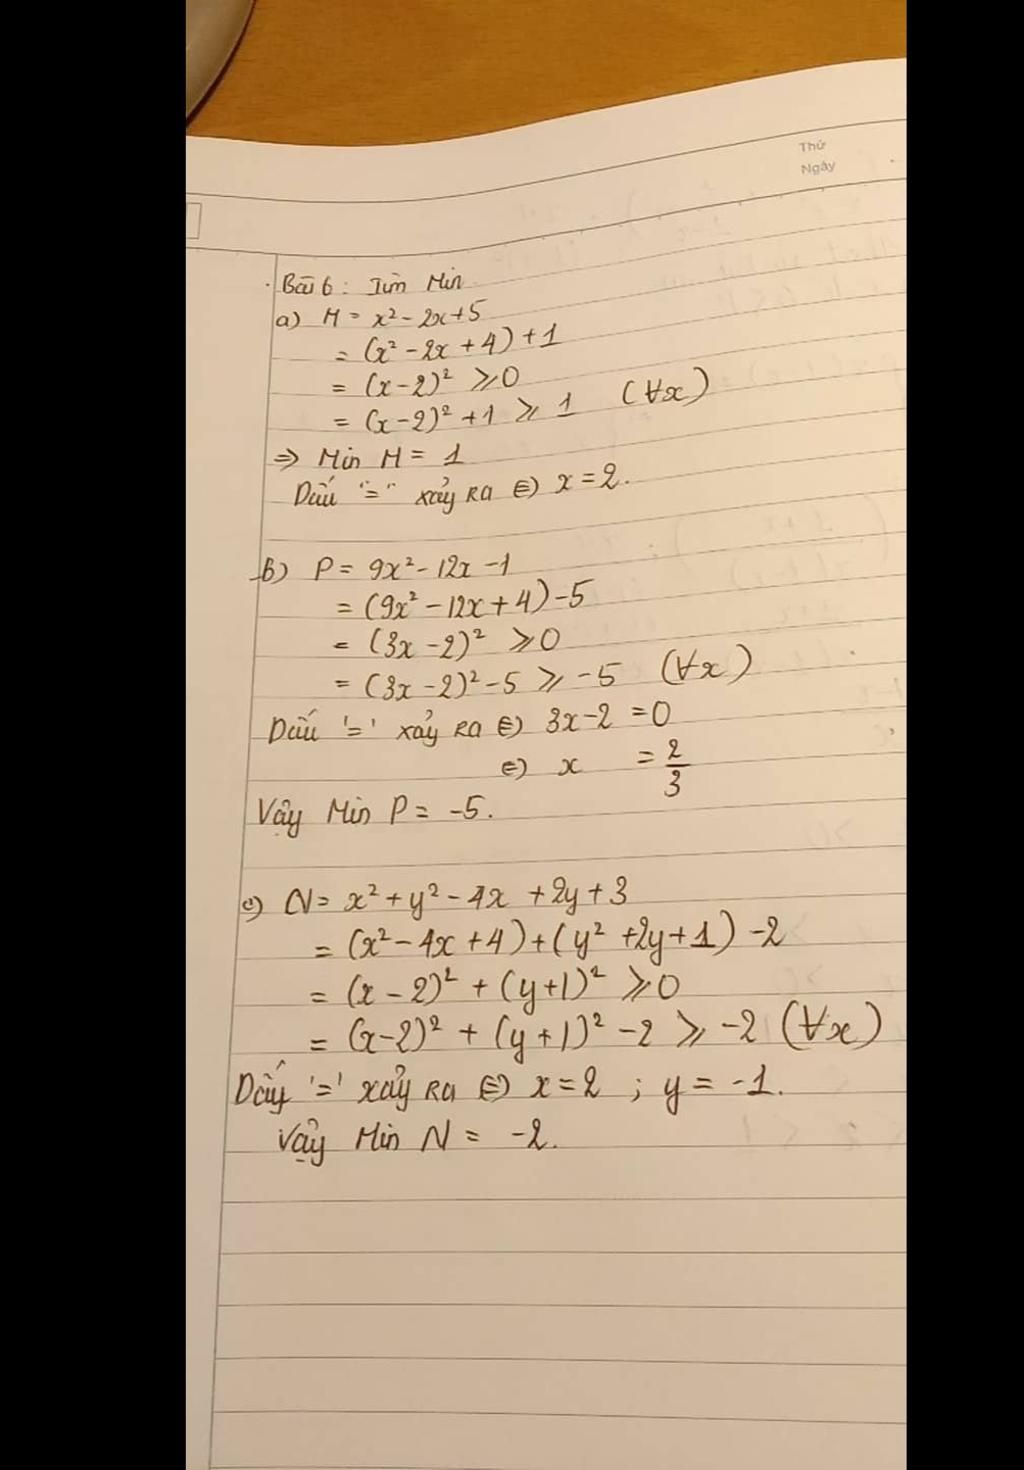 Thứ
Ngày
Bài 6: Tìm Min
a) M = x² - 2x + 5
= (x² - 2x + 4) + 1
= (x - 2)² ⩾ 0
= (x - 2)² + 1 ⩾ 1 (∀x)
⇒ Min M = 1
Dấu "=" xảy ra ⇔ x = 2.
b) P = 9x² - 12x - 1
= (9x² - 12x + 4) - 5
= (3x - 2)² ⩾ 0
= (3x - 2)² - 5 ⩾ -5 (∀x)
Dấu '=' xảy ra ⇔ 3x - 2 = 0
⇔ x = 2/3
Vậy Min P = -5.
c) N = x² + y² - 4x + 2y + 3
= (x² - 4x + 4) + (y² + 2y + 1) - 2
= (x - 2)² + (y + 1)² ⩾ 0
= (x - 2)² + (y + 1)² - 2 ⩾ -2 (∀x)
Dấu '=' xảy ra ⇔ x = 2 ; y = -1.
Vậy Min N = -2.